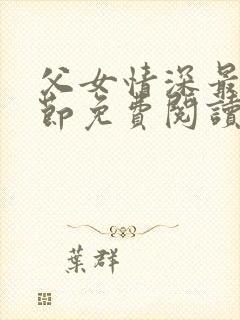 父女情深最
節免費閱讀
葉群